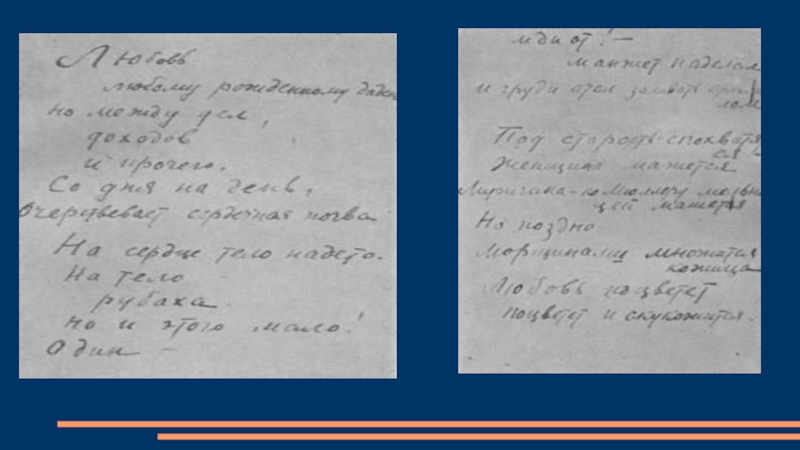 Любовь
любому рожденному даден
но между дел,
доходов
и прочего,
Со дня на день,
Очерствевает сердечная почва
На сердце тело надето.
На тело
рубаха.
Но и этого мало!
Один —
идиот! —
манжет наделал
и груди стал заливать
Под старость спохватят
ся
Женщина мажется
по Мюллеру
цей машется
Но поздно
Морщинами множится
кожица
Любовь поцветет
поцветет и скукожится.